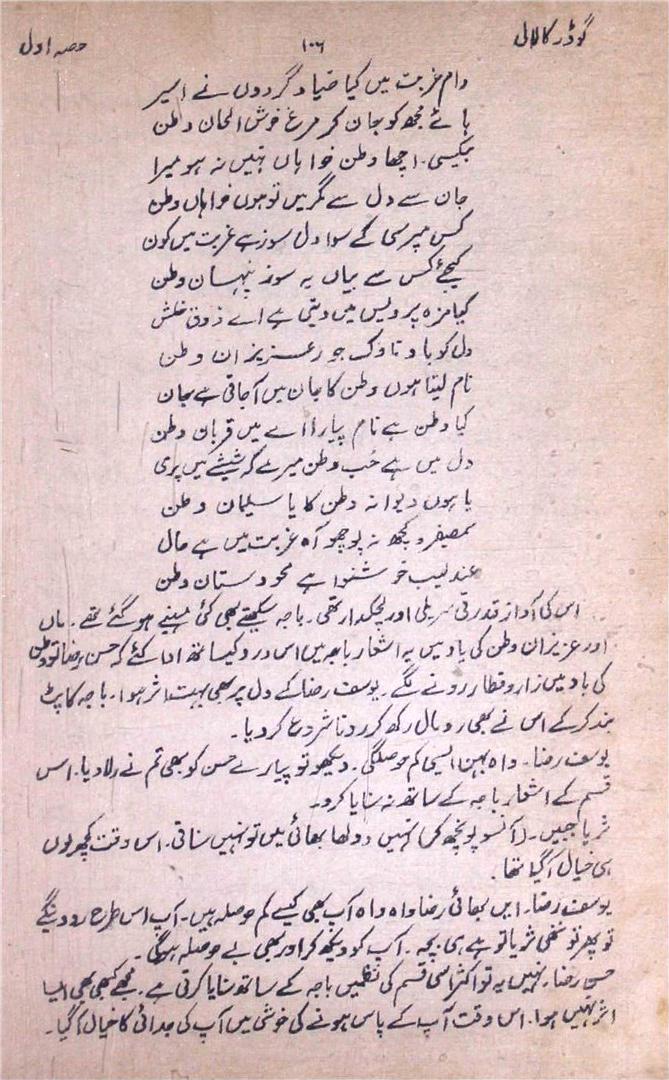 گوڈر کا لال ۱۰۶ حصہ اول
دام غربت میں کیا صیاد گردوں نے اسیر
ہائے مجھ کو جان کر مرغ خوش الحان وطن
بیکسی۔ اچھا وطن خواہاں نہیں نہ ہو میرا
جان سے دل سے مگر میں تو ہوں خواہاں وطن
کس مپرسی کے سوا دل سوز ہے غربت میں کون
کیجئے کس سے بیاں یہ سوز پنہان وطن
کیا مزہ پردیس میں دیتی ہے اے ذوق خلش
دل کو یاد ناوک جور عزیزان وطن
نام لیتا ہوں وطن کا جان میں آجاتی ہے جان
کیا وطن ہے نام پیارا اے میں قربان وطن
دل میں ہے حُب وطن میرے کہ شیشے میں پری
یا ہوں دیوانہ وطن کا یا سلیمان وطن
ہمصفیرو کچھ نہ پوچھو آہ غربت میں ہے حال
عندلیب خوشنوا ہے محو دستان وطن
اس کی آواز قدرتی سریلی اور لچکدار تھی۔ باجہ سیکھتے بھی کئی مہینے ہو گئے تھے۔ ماں
اور عزیزان وطن کی یاد میں یہ اشعار باجہ میں اس درد کیساتھ ادا کئے کہ حسن رضا تو وطن
کی یاد میں زار و قطار رونے لگے۔ یوسف رضا کے دل پر بھی بہت اثر ہوا۔ باجہ کا پٹ
بند کر کے اس نے بھی رومال رکھ کر رونا شروع کر دیا۔
یوسف رضا۔ واہ بہن ایسی کم حوصلگی۔ دیکھو تو پیارے حسن کو بھی تم نے رلا دیا۔ اس
قسم کے اشعار باجہ کے ساتھ نہ سنایا کرو۔
ثریا جبیں۔ (آنسو پونچھ کر) نہیں دولھا بھائی میں تو نہیں سناتی۔ اس وقت کچھ یوں
ہی خیال آگیا تھا۔
یوسف رضا۔ ایں بھائی رضا واہ واہ آپ بھی کیسے کم حوصلہ ہیں۔ آپ اس طرح رو دینگے
تو پھر تو ننھی ثریا تو ہے ہی بچہ۔ آپ کو دیکھ کر اور بھی بے حوصلہ ہوگی۔
حسن رضا۔ نہیں یہ تو اکثر اسی قسم کی نظمیں باجہ کے ساتھ سنایا کرتی ہے۔ مجھے کبھی بھی ایسا
اثر نہیں ہوا۔ اس وقت آپ کے پاس ہونے کی خوشی میں آپ کی جدائی کا خیال آگیا۔